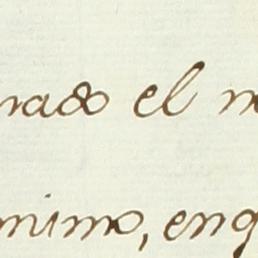 rado el m
nimo, enq